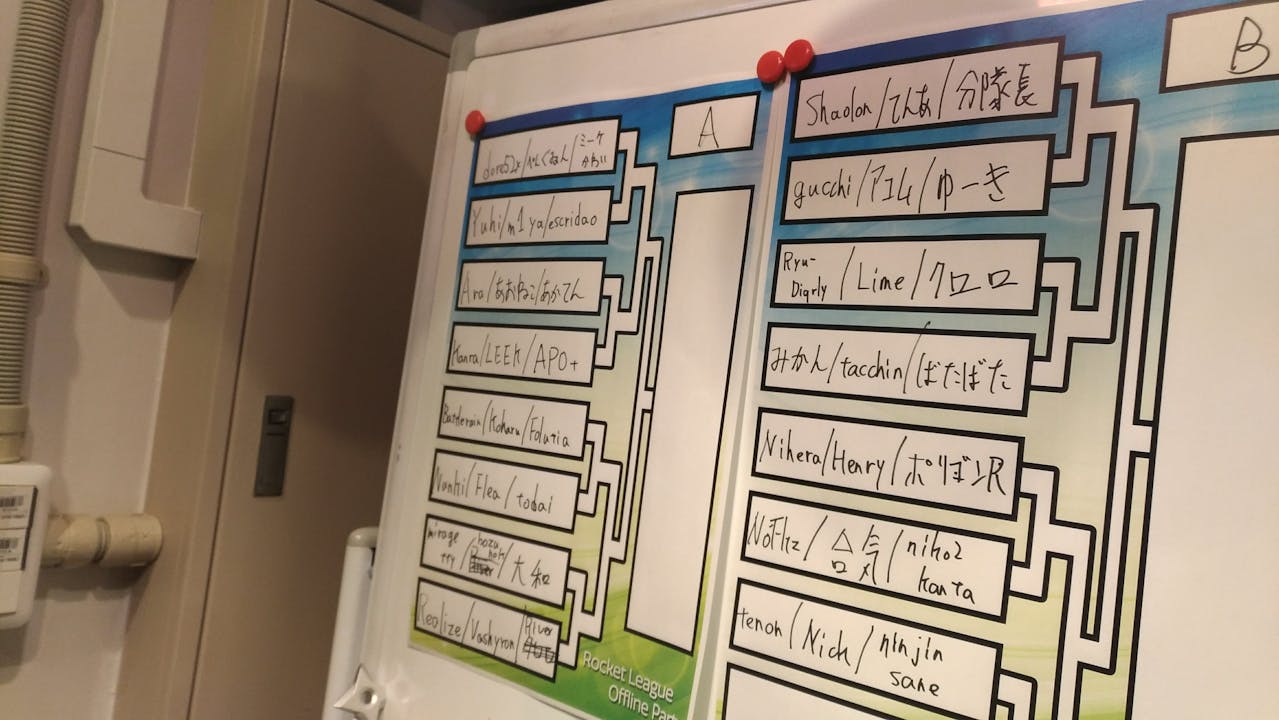 A
dore52x/ぺんぐぃん/ミーケかわい
Yuhi/m1ya/escridao
Ara/あおねこ/あかてん
Kanra/LEEK/APO+
Batterain/Koharu/Folutia
Nunki/Flea/todai
mirage
try/大和
Realize/Vashyron/River
Rocket League
Offline
B
Shaolon/てんあ/分隊長
gucchi/アコム/ゆーき
Ryu-
Diqrly/Lime/クロロ
みかん/tacchin/ばたばた
Nihera/Henry/ポリゴンR
合気/niko2
kanta
tenon/Nick/ninjin
sane